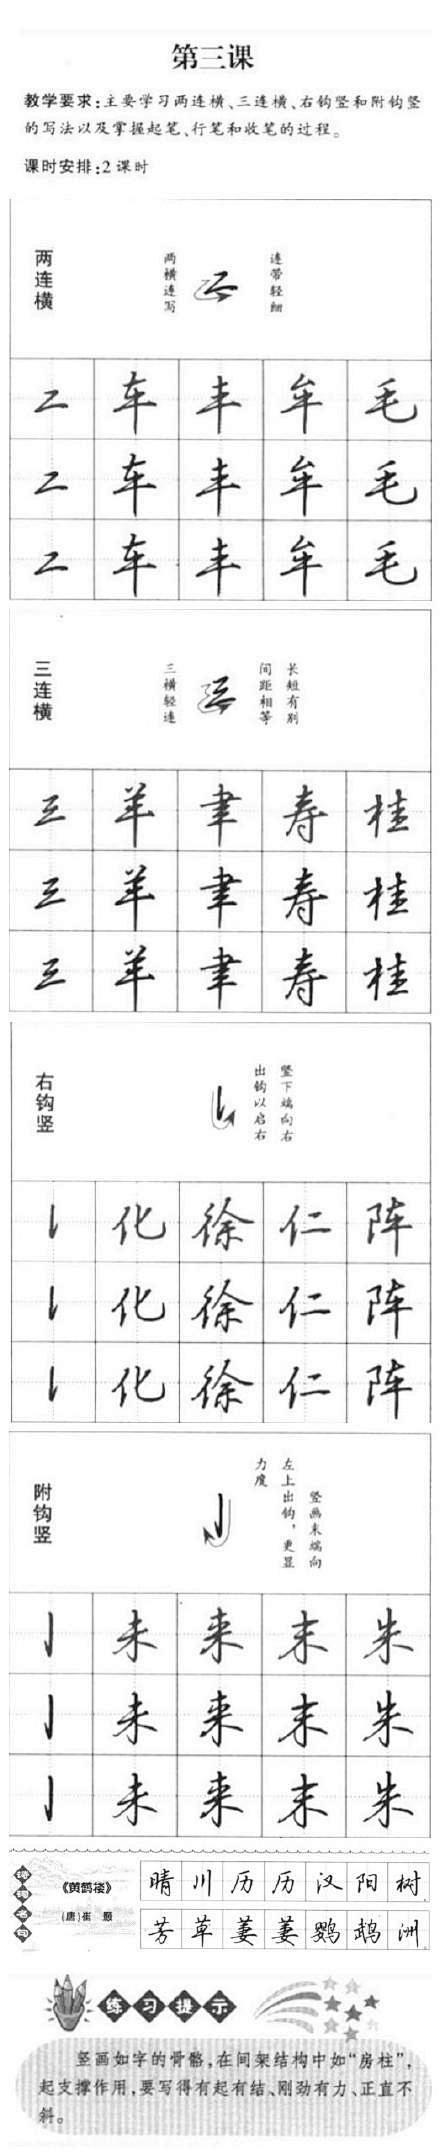 第三课
教学要求:主要学习两连横、三连横、右钩竖和附钩竖
的写法以及掌握起笔、行笔和收笔的过程。
课时安排:2课时
两连横
两横连写
连带轻细
二 车 丰 牟 毛
二 车 丰 牟 毛
二 车 丰 牟 毛
三连横
三横轻连
长短有别
间距相等
三 羊 聿 寿 桂
三 羊 聿 寿 桂
三 羊 聿 寿 桂
右钩竖
竖下端向右
出钩以启右
化 徐 仁 阵
化 徐 仁 阵
化 徐 仁 阵
附钩竖
竖画末端向
左上出钩,更显
力度
未 来 末 朱
未 来 末 朱
未 来 末 朱
《黄鹤楼》
(唐)崔 颢
晴川历历汉阳树
芳草萋萋鹦鹉洲
练习提示
竖画如字的骨骼,在间架结构中如“房柱”,
起支撑作用,要写得有起有结、刚劲有力、正直不
斜。